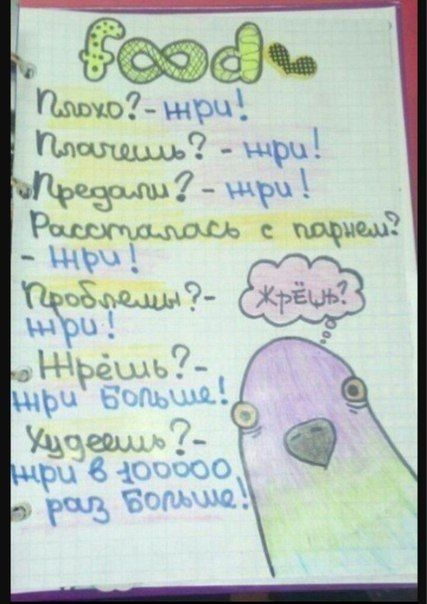 food
Плохо? - жри!
Плачешь? - жри!
Предали? - жри!
Рассталась с парнем?
- жри!
Проблемы? -
жри!
Жрёшь? -
жри больше!
Худеешь? -
жри в 100000
раз больше!
ЖрЁшь?